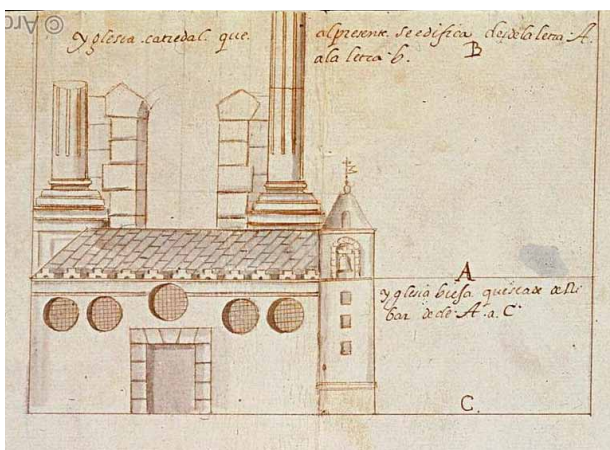 yglesia catredal que al presente se edifica desde la letra A.
a la letra b.
B
A
yglesia biexa que se a de de Ri
bar desde A. a. C.
C.